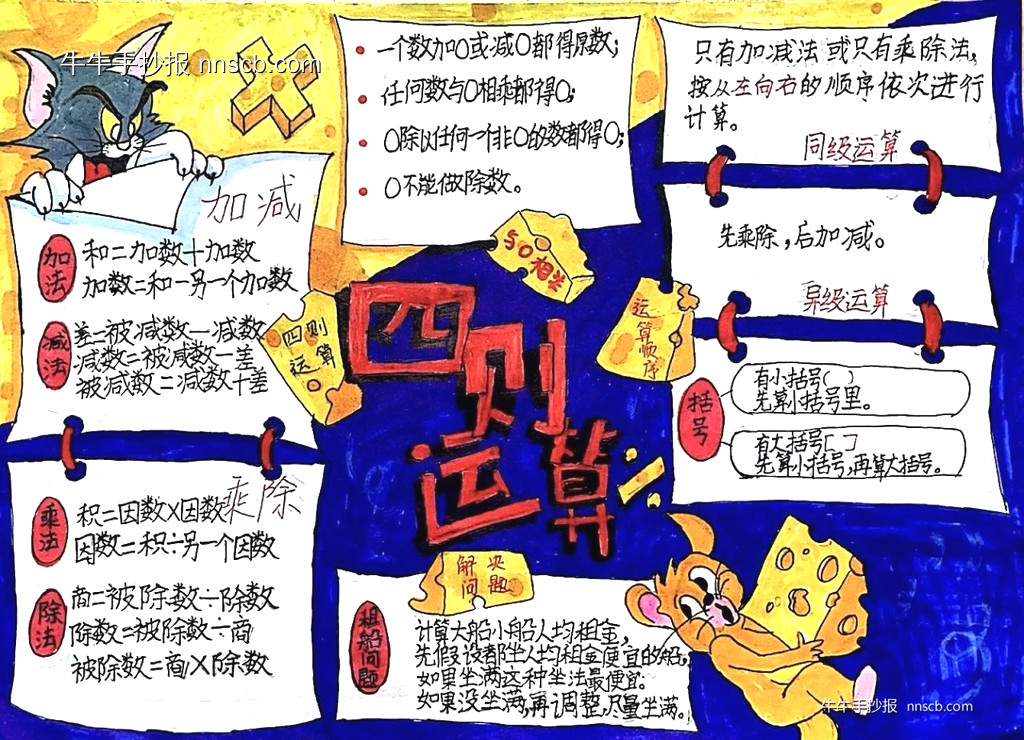 牛牛手抄报 nnscb.com
加减
加法
和=加数+加数
加数=和-另一个加数
减法
差=被减数-减数
减数=被减数-差
被减数=减数+差
乘除
乘法
积=因数×因数
因数=积÷另一个因数
除法
商=被除数÷除数
除数=被除数÷商
被除数=商×除数
一个数加0或减0都得原数;
任何数与0相乘都得0;
0除以任何一个非0的数都得0;
0不能做除数。
与0相关
四则
运算
四则
运算
运算顺序
解决
问题
租船问题
计算大船小船人均租金,
先假设都坐人均租金便宜的船,
如果坐满这种坐法最便宜.
如果没坐满,再调整,尽量坐满。
只有加减法或只有乘除法,
按从左向右的顺序依次进行
计算。
同级运算
先乘除,后加减。
异级运算
括号
有小括号( )
先算小括号里。
有大括号[ ]
先算小括号,再算大括号。
牛牛手抄报 nnscb.com